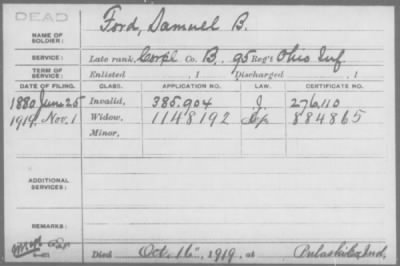 DEAD
NAME OF SOLDIER:
Ford, Samuel B.
SERVICE:
Late rank, Corpl Co. B, 95 Reg't Ohio Inf.
TERM OF SERVICE:
Enlisted , 1 Discharged , 1
DATE OF FILING. CLASS. APPLICATION NO. LAW. CERTIFICATE NO.
1880 June 25 Invalid, 385.904 J. 276,110
1919, Nov. 1 Widow, 1148192 884865
Minor,
ADDITIONAL SERVICES:
REMARKS:
Died Oct. 16", 1919, at Pulaski Co, Ind.